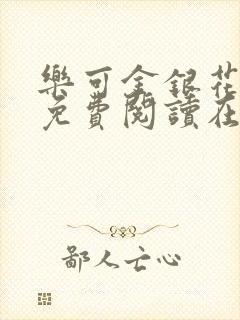 樂可金銀花
免費閱讀在
鄙人亡心